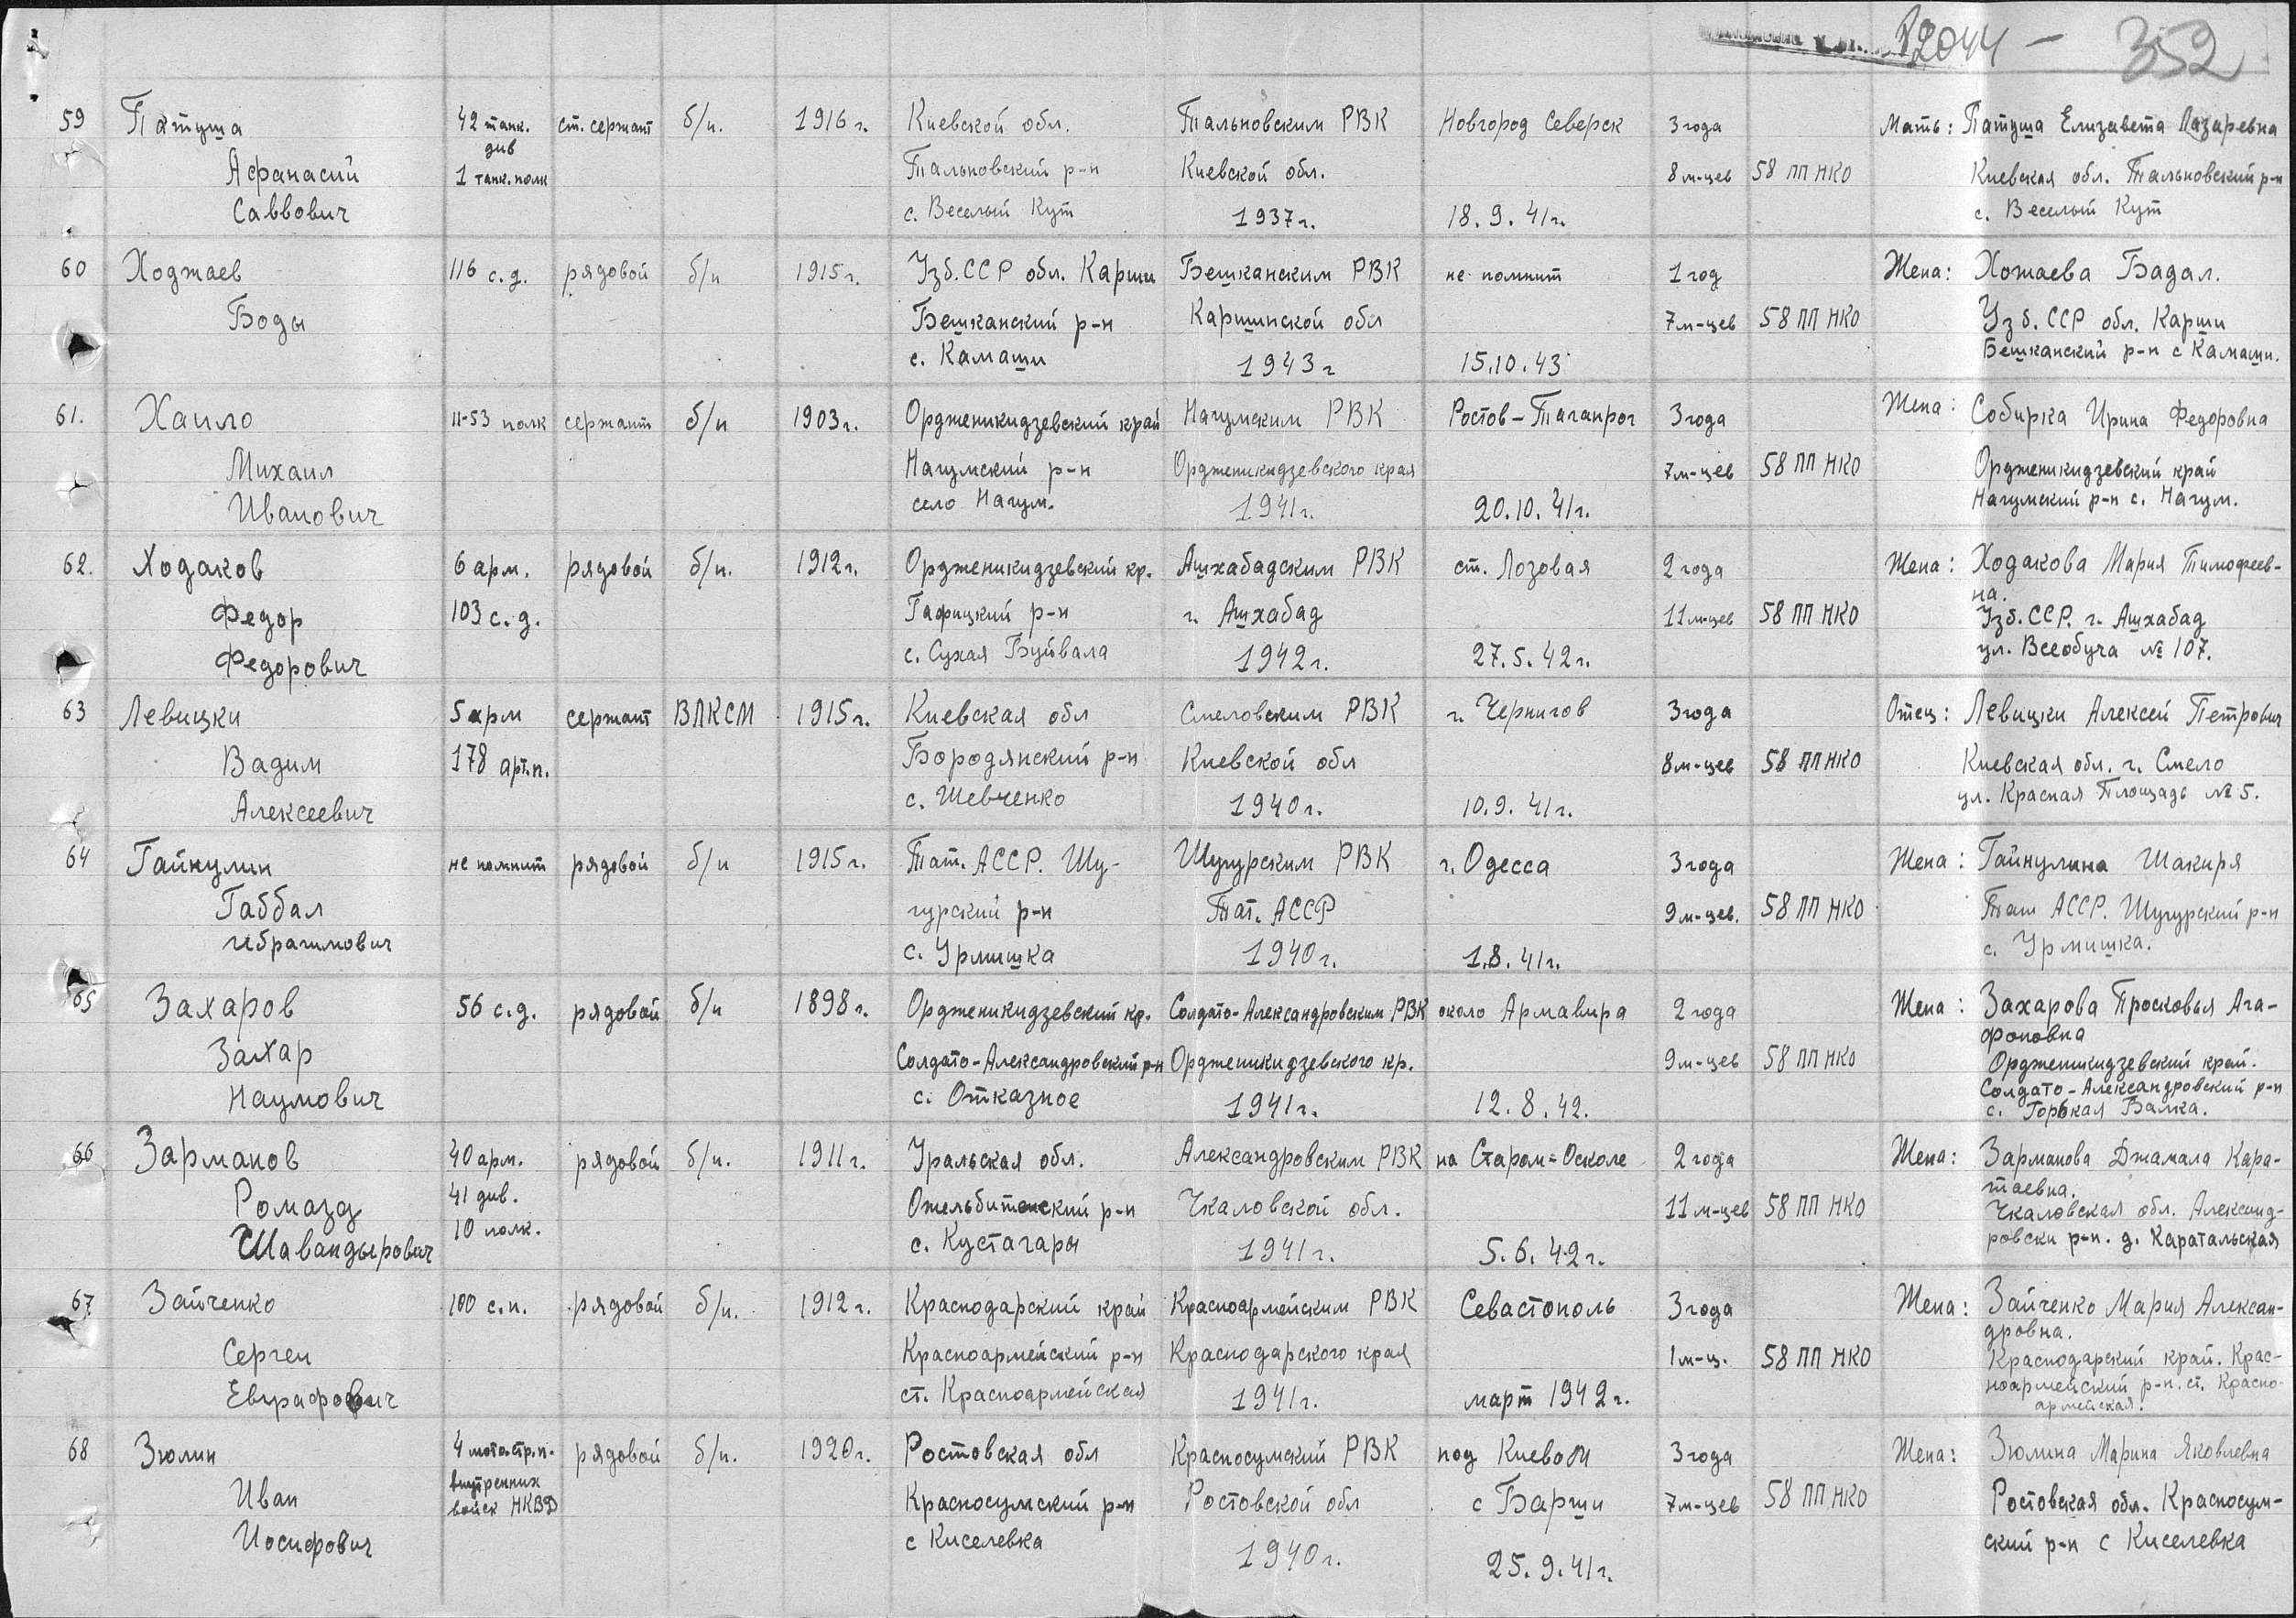 32044 — 352
59 Патуша 42 танк. ст. сержант б/п. 1916 г. Киевской обл. Тальновским РВК Новгород Северск 3 года Мать: Патуша Елизавета Лазаревна
див
Афанасий 1 танк. полк Тальновский р-н Киевской обл. 8 м-цев 58 ПП НКО Киевская обл. Тальновский р-н
Саввович с. Веселый Кут 1937 г. 18.9.41 г. с. Веселый Кут
60 Ходжаев 116 с.д. рядовой б/п 1915 г. Узб. ССР обл. Карши Бешканским РВК не помнит 1 год Жена: Хожаева Бадал.
Боды Бешканский р-н Каршинской обл 7 м-цев 58 ПП НКО Узб. ССР обл. Карши
с. Камаши 1943 г 15.10.43 Бешканский р-н с Камаши.
61. Хаило 11-53 полк сержант б/п 1903 г. Ордженикидзевский край Нагумским РВК Ростов-Таганрог 3 года Жена: Собирка Ирина Федоровна
Михаил Нагумский р-н Ордженикидзевского края 7 м-цев 58 ПП НКО Ордженикидзевский край
Иванович село Нагум. 1941 г. 20.10.41 г. Нагумский р-н с. Нагум.
62. Ходаков 6 арм. рядовой б/п. 1912 г. Ордженикидзевский кр. Ашхабадским РВК ст. Лозовая 2 года Жена: Ходакова Мария Тимофеев-
на.
Федор 103 с.д. Гафицкий р-н г. Ашхабад 11 м-цев 58 ПП НКО Узб. ССР. г. Ашхабад
Федорович с. Сухая Буйвала 1942 г. 27.5.42 г. ул. Всеобуча № 107.
63 Левицки 5 арм сержант ВЛКСМ 1915 г. Киевская обл Смеловским РВК г. Чернигов 3 года Отец: Левицки Алексей Петрович
Вадим 178 арт.п. Бородянский р-н Киевской обл 8 м-цев 58 ПП НКО Киевская обл. г. Смело
Алексеевич с. Шевченко 1940 г. 10.9.41 г. ул. Красная Площадь № 5.
64 Гайнулин не помнит рядовой б/п 1915 г. Тат. АССР. Шу- Шугурским РВК г. Одесса 3 года Жена: Гайнулина Шакиря
Габбал гурский р-н Тат. АССР 9 м-цев. 58 ПП НКО Тат АССР. Шугурский р-н
Ибрагимович с. Урмишка 1940 г. 1.8.41 г. с. Урмишка.
65 Захаров 56 с.д. рядовой б/п 1898 г. Ордженикидзевский кр. Солдато-Александровским РВК около Армавира 2 года Жена: Захарова Просковья Ага-
фоновна
Захар Солдато-Александровский р-н Ордженикидзевского кр. 9 м-цев 58 ПП НКО Ордженикидзевский край.
Солдато-Александровский р-н
Наумович с. Отказное 1941 г. 12.8.42. с. Горькая Балка.
66 Зарманов 40 арм. рядовой б/п. 1911 г. Уральская обл. Александровским РВК на Старом-Осколе 2 года Жена: Зарманова Джамала Кара-
таевна.
Ромазд 41 див. Ожельбитенский р-н Чкаловской обл. 11 м-цев 58 ПП НКО Чкаловская обл. Александ-
Шавандырович 10 полк. с. Кустагары 1941 г. 5.6.42 г. ровски р-н. д. Каратальская
67 Зайченко 100 с.п. рядовой б/п. 1912 г. Краснодарский край Красноармейским РВК Севастополь 3 года Жена: Зайченко Мария Алексан-
дровна.
Сергеи Красноармейский р-н Краснодарского края 1 м-ц. 58 ПП НКО Краснодарский край. Крас-
Евграфович ст. Красноармейская 1941 г. март 1942 г. ноармейский р-н. ст. Красно-
армейская.
68 Зюлин 4 мото.стр.п. рядовой б/п. 1920 г. Ростовская обл Красносумский РВК под Киевом 3 года Жена: Зюлина Марина Яковлевна
внутренних
Иван войск НКВД Красносумский р-н Ростовской обл с Барши 7 м-цев 58 ПП НКО Ростовская обл. Красносум-
Иосифович с Киселевка 1940 г. 25.9.41 г. ский р-н с Киселевка